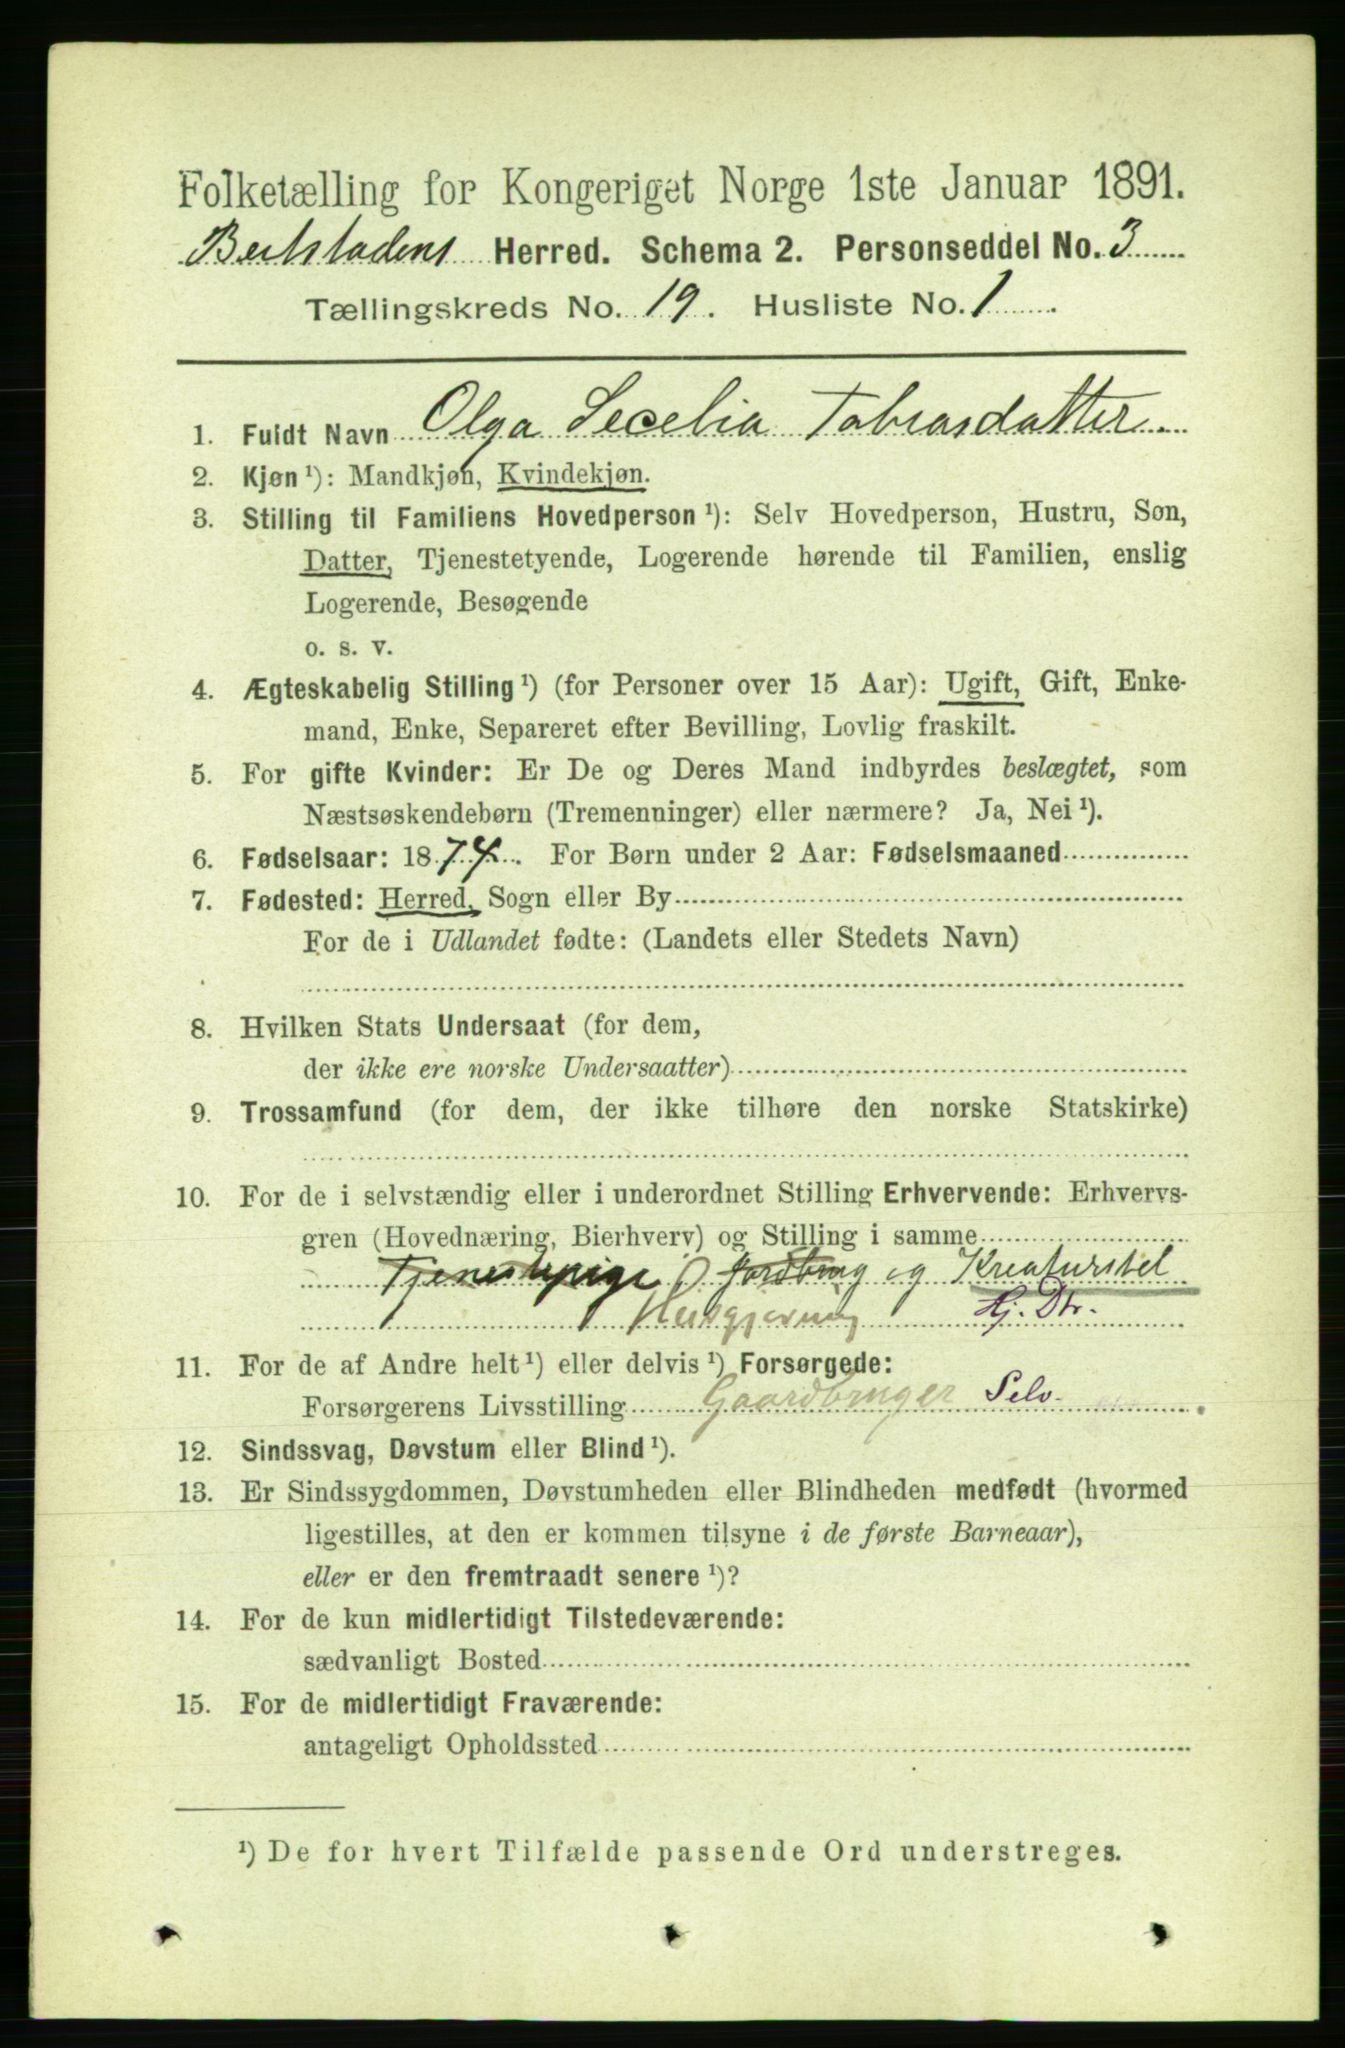 Folketælling for Kongeriget Norge 1ste Januar 1891.
Beitstadens Herred. Schema 2. Personseddel No. 3
Tællingskreds No. 19. Husliste No. 1
1. Fuldt Navn Olga Secelia Tobiasdatter
2. Kjøn ¹): Mandkjøn, Kvindekjøn.
3. Stilling til Familiens Hovedperson ¹): Selv Hovedperson, Hustru, Søn,
Datter, Tjenestetyende, Logerende hørende til Familien, enslig
Logerende, Besøgende
o. s. v.
4. Ægteskabelig Stilling ¹) (for Personer over 15 Aar): Ugift, Gift, Enke-
mand, Enke, Separeret efter Bevilling, Lovlig fraskilt.
5. For gifte Kvinder: Er De og Deres Mand indbyrdes beslægtet, som
Næstsøskendebørn (Tremenninger) eller nærmere? Ja, Nei ¹).
6. Fødselsaar: 1874. For Børn under 2 Aar: Fødselsmaaned
7. Fødested: Herred, Sogn eller By
For de i Udlandet fødte: (Landets eller Stedets Navn)
8. Hvilken Stats Undersaat (for dem,
der ikke ere norske Undersaatter)
9. Trossamfund (for dem, der ikke tilhøre den norske Statskirke)
10. For de i selvstændig eller i underordnet Stilling Erhvervende: Erhvervs-
gren (Hovednæring, Bierhverv) og Stilling i samme
Tjenestepige Jordbrug og Kreaturstel
Husgjerning Hj. Dtr.
11. For de af Andre helt ¹) eller delvis ¹) Forsørgede:
Forsørgerens Livsstilling Gaardbruger Selv
12. Sindssvag, Døvstum eller Blind ¹).
13. Er Sindssygdommen, Døvstumheden eller Blindheden medfødt (hvormed
ligestilles, at den er kommen tilsyne i de første Barneaar),
eller er den fremtraadt senere ¹)?
14. For de kun midlertidigt Tilstedeværende:
sædvanligt Bosted
15. For de midlertidigt Fraværende:
antageligt Opholdssted
¹) De for hvert Tilfælde passende Ord understreges.